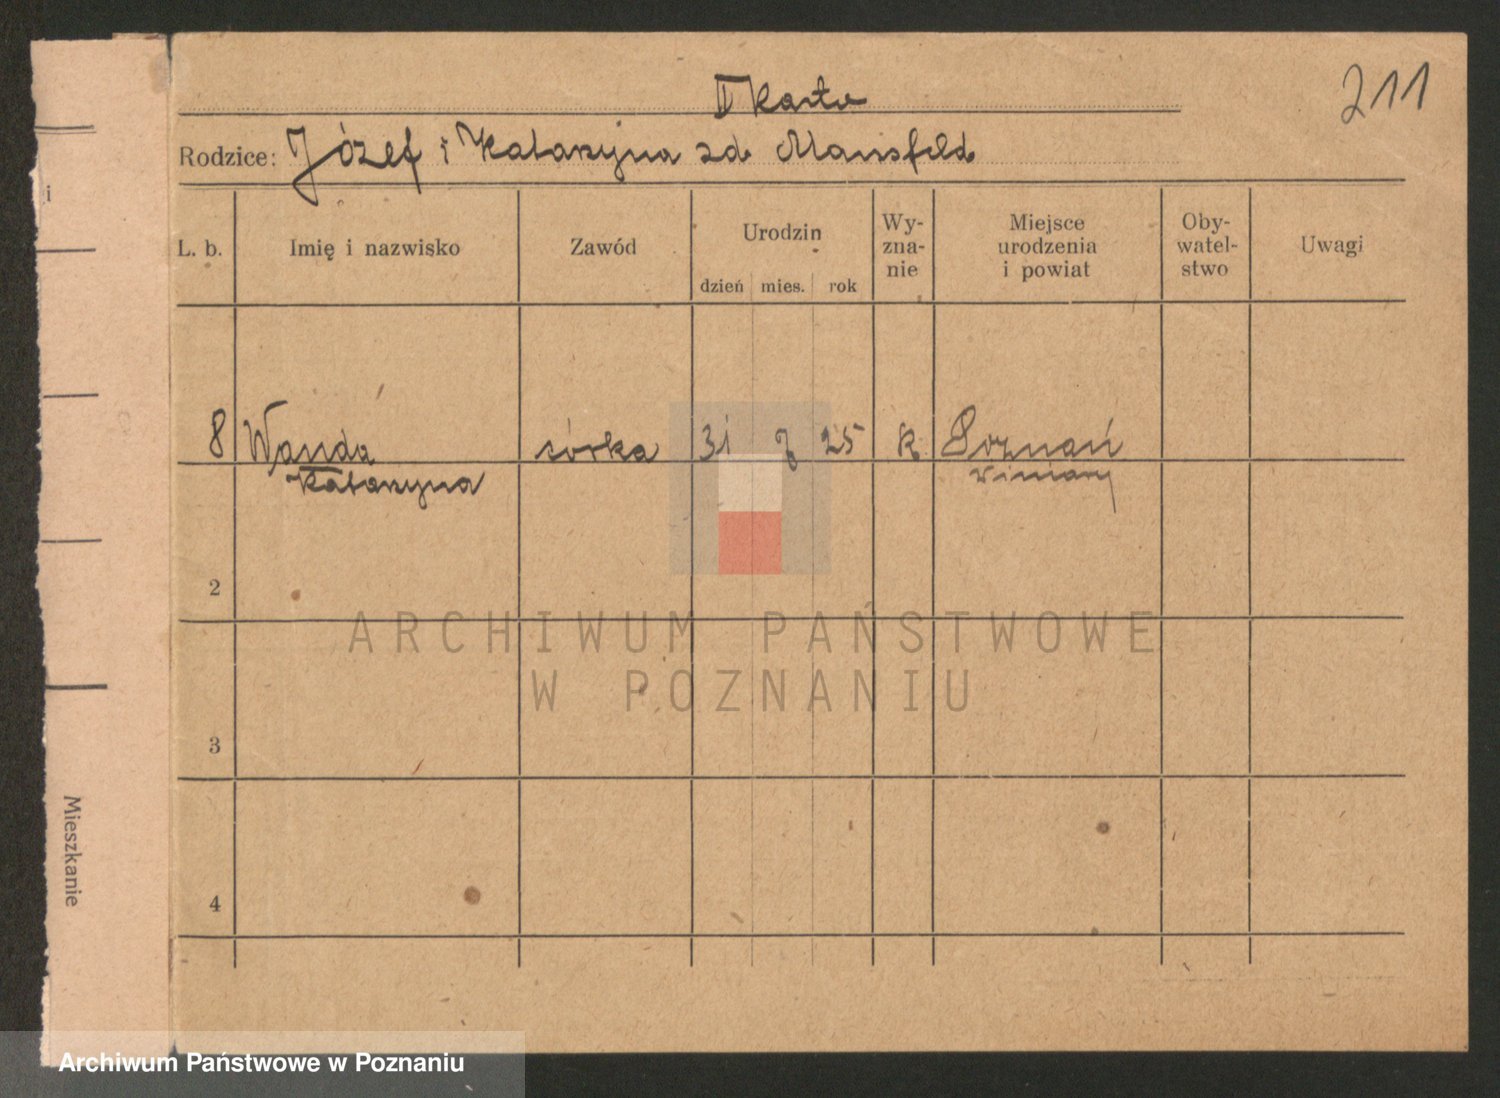 II karta
211
Rodzice: Józef i Katarzyna zd Mansfeld
i
L. b.
Imię i nazwisko
Zawód
Urodzin
dzień mies. rok
Wy-
zna-
nie
Miejsce
urodzenia
i powiat
Oby-
watel-
stwo
Uwagi
8 Wanda córka 31 25 K Poznań
Katarzyna Winiary
2
3
4
Mieszkanie
ARCHIWUM PAŃSTWOWE
W POZNANIU
Archiwum Państwowe w Poznaniu